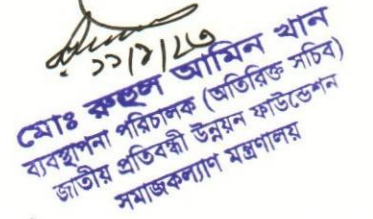 ১১/১/২৩
মোঃ রুহুল আমিন খান
ব্যবস্থাপনা পরিচালক (অতিরিক্ত সচিব)
জাতীয় প্রতিবন্ধী উন্নয়ন ফাউন্ডেশন
সমাজকল্যাণ মন্ত্রণালয়